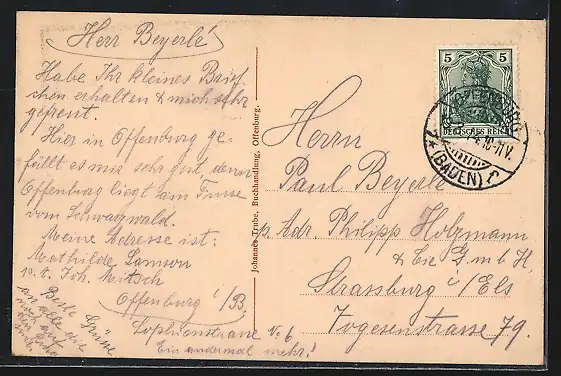 Herr Beyerlé
Habe Ihr kleines Brief
chen erhalten & mich sehr
gefreut.
Hier in Offenburg ge-
fällt es mir sehr gut, denn
Offenburg liegt am Fusse
vom Schwarzwald.
Meine Adresse ist:
Mathilde Samson
p. a. Joh. Mitsch
Offenburg i/B,
Sophienstrasse No 6
Ein andermal mehr!
Beste Grüsse
an alle die
Johannes Trube, Buchhandlung, Offenburg.
5 5
DEUTSCHES REICH
OFFENBURG
10-11V.
* (BADEN)
Herrn
Paul Beyerlé
p. Adr. Philipp Holzmann
& Cie G.m.b.H.
Strassburg i/Els
Vogesenstrasse 79.